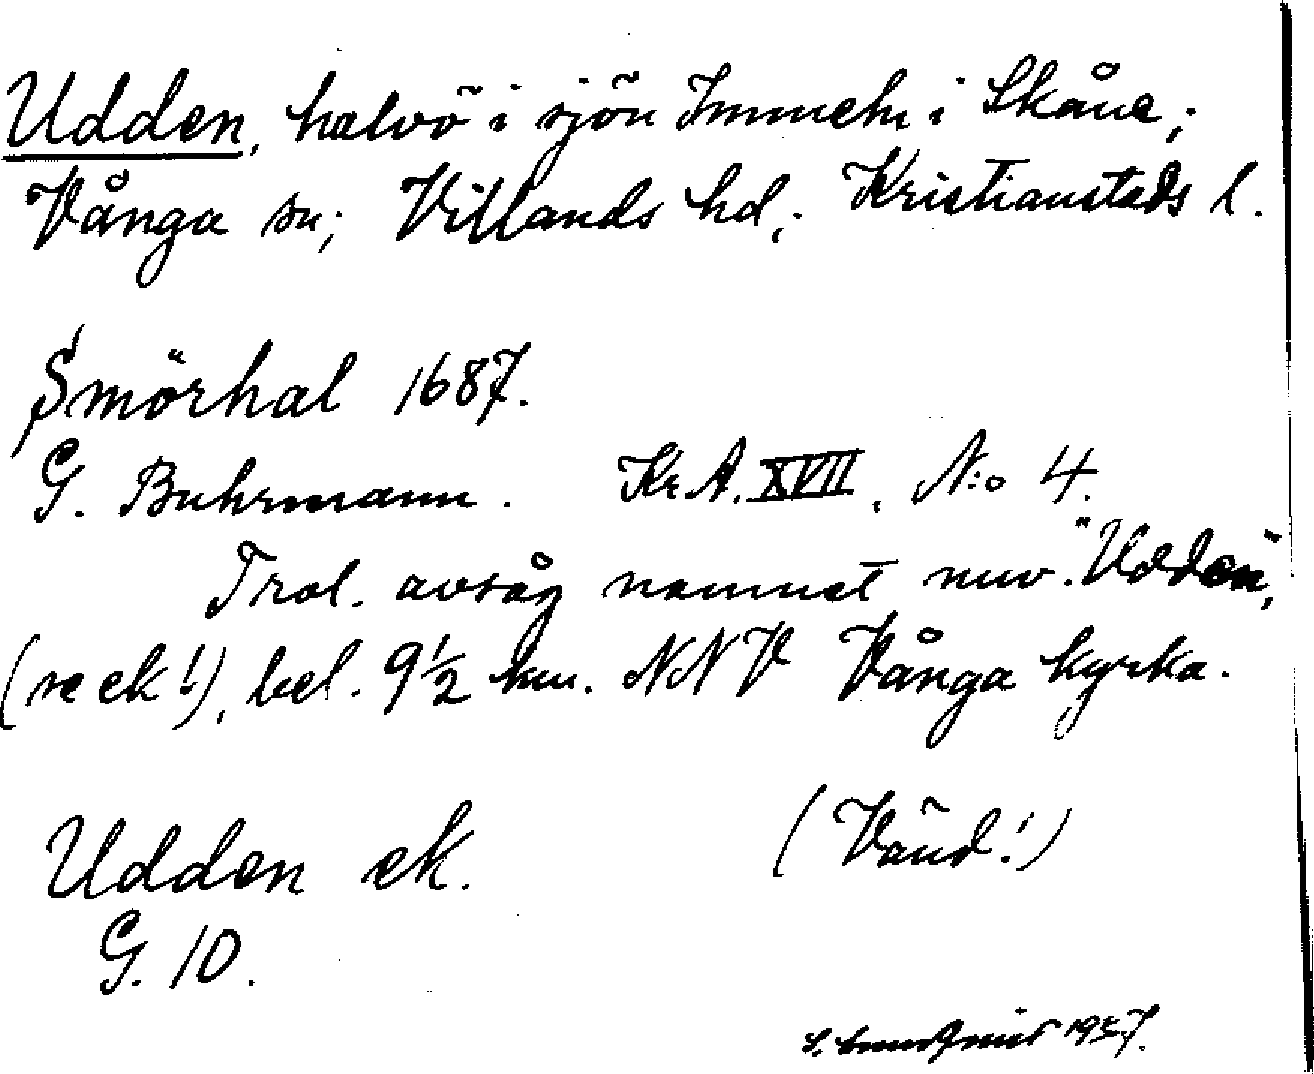 Udden, halvö i sjön Immeln i Skåne;
Vånga sn; Villands hd; Kristianstads l.
Smörhal 1687.
G. Buhrmann. Kr. A. XVII, N:o 4.
Trol. avsåg namnet nuv. "Udden",
(se ek!), bel. 9½ km. NNV Vånga kyrka.
Udden ek. (Vänd!)
G. 10.
1957.